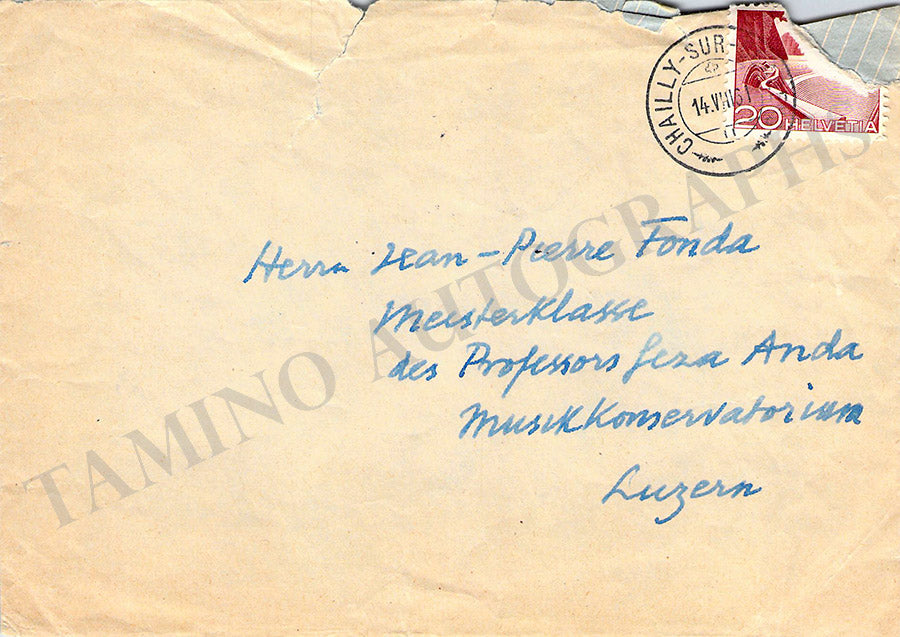 CHAILLY-SUR-
20 HELVETIA
Herrn Jean-Pierre Fonda
Meisterklasse
des Professors Geza Anda
Musikkonservatorium
Luzern
TAMINO AUTOGRAPHS